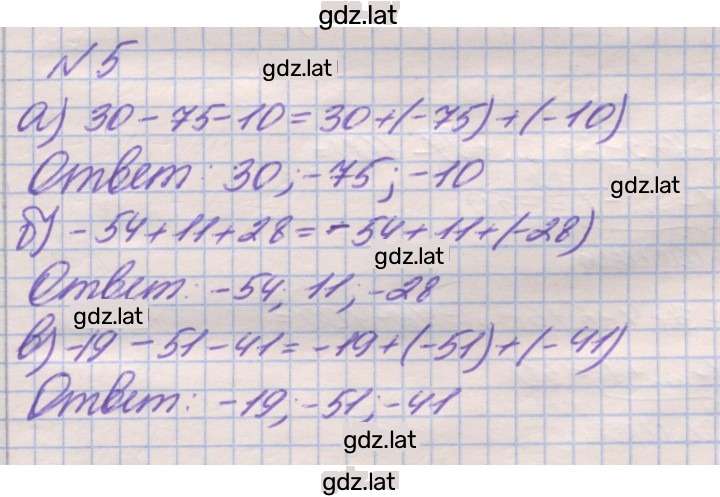 gdz.lat
№ 5
gdz.lat
а) 30 - 75 - 10 = 30 + (-75) + (-10)
Ответ: 30; -75; -10
gdz.lat
б) - 54 + 11 + 28 = - 54 + 11 + (-28)
gdz.lat
Ответ: -54; 11; -28
gdz.lat
в) -19 - 51 - 41 = -19 + (-51) + (-41)
Ответ: -19; -51; -41
gdz.lat
gdz.lat